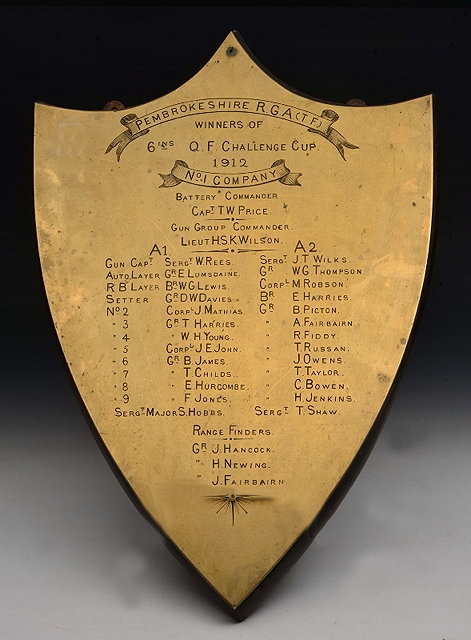 PEMBROKESHIRE R.G.A (T.F)
WINNERS OF
6INS Q.F. CHALLENGE CUP.
1912
No.1 COMPANY
BATTERY COMMANDER
CAPT T.W. PRICE.
GUN GROUP COMMANDER.
LIEUT H.S.K. WILSON.
A1 A2
GUN CAPT SERGT W. REES. SERGT J.T WILKS.
AUTO. LAYER GR E. LUMSDAINE. GR W.G THOMPSON
R B LAYER BR W.G LEWIS. CORPL M. ROBSON.
SETTER GR D.W DAVIES. BR E HARRIES
No 2 CORPL J. MATHIAS. GR B. PICTON.
" 3 GR T HARRIES. " A. FAIRBAIRN.
" 4 " W.H YOUNG. " R. FIDDY.
" 5 CORPL J.E JOHN. " T. RUSSAN.
" 6 GR B. JAMES. " J. OWENS.
" 7 " T. CHILDS. " T. TAYLOR.
" 8 " E HURCOMBE. " C. BOWEN.
" 9 " F JONES. " H. JENKINS.
SERGT MAJOR S. HOBBS. SERGT T. SHAW.
RANGE FINDERS.
GR J. HANCOCK.
" H. NEWING.
" J. FAIRBAIRN